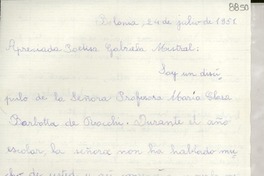 8850
Bolonia, 24 de julio de 1951
Apreciada Poetisa Gabriela Mistral:
Soy un discí
pulo de la Señora Profesora María Elisa
Barbotta de Quocchi. Durante el año
escolar la señora nos ha hablado mu
cho de usted